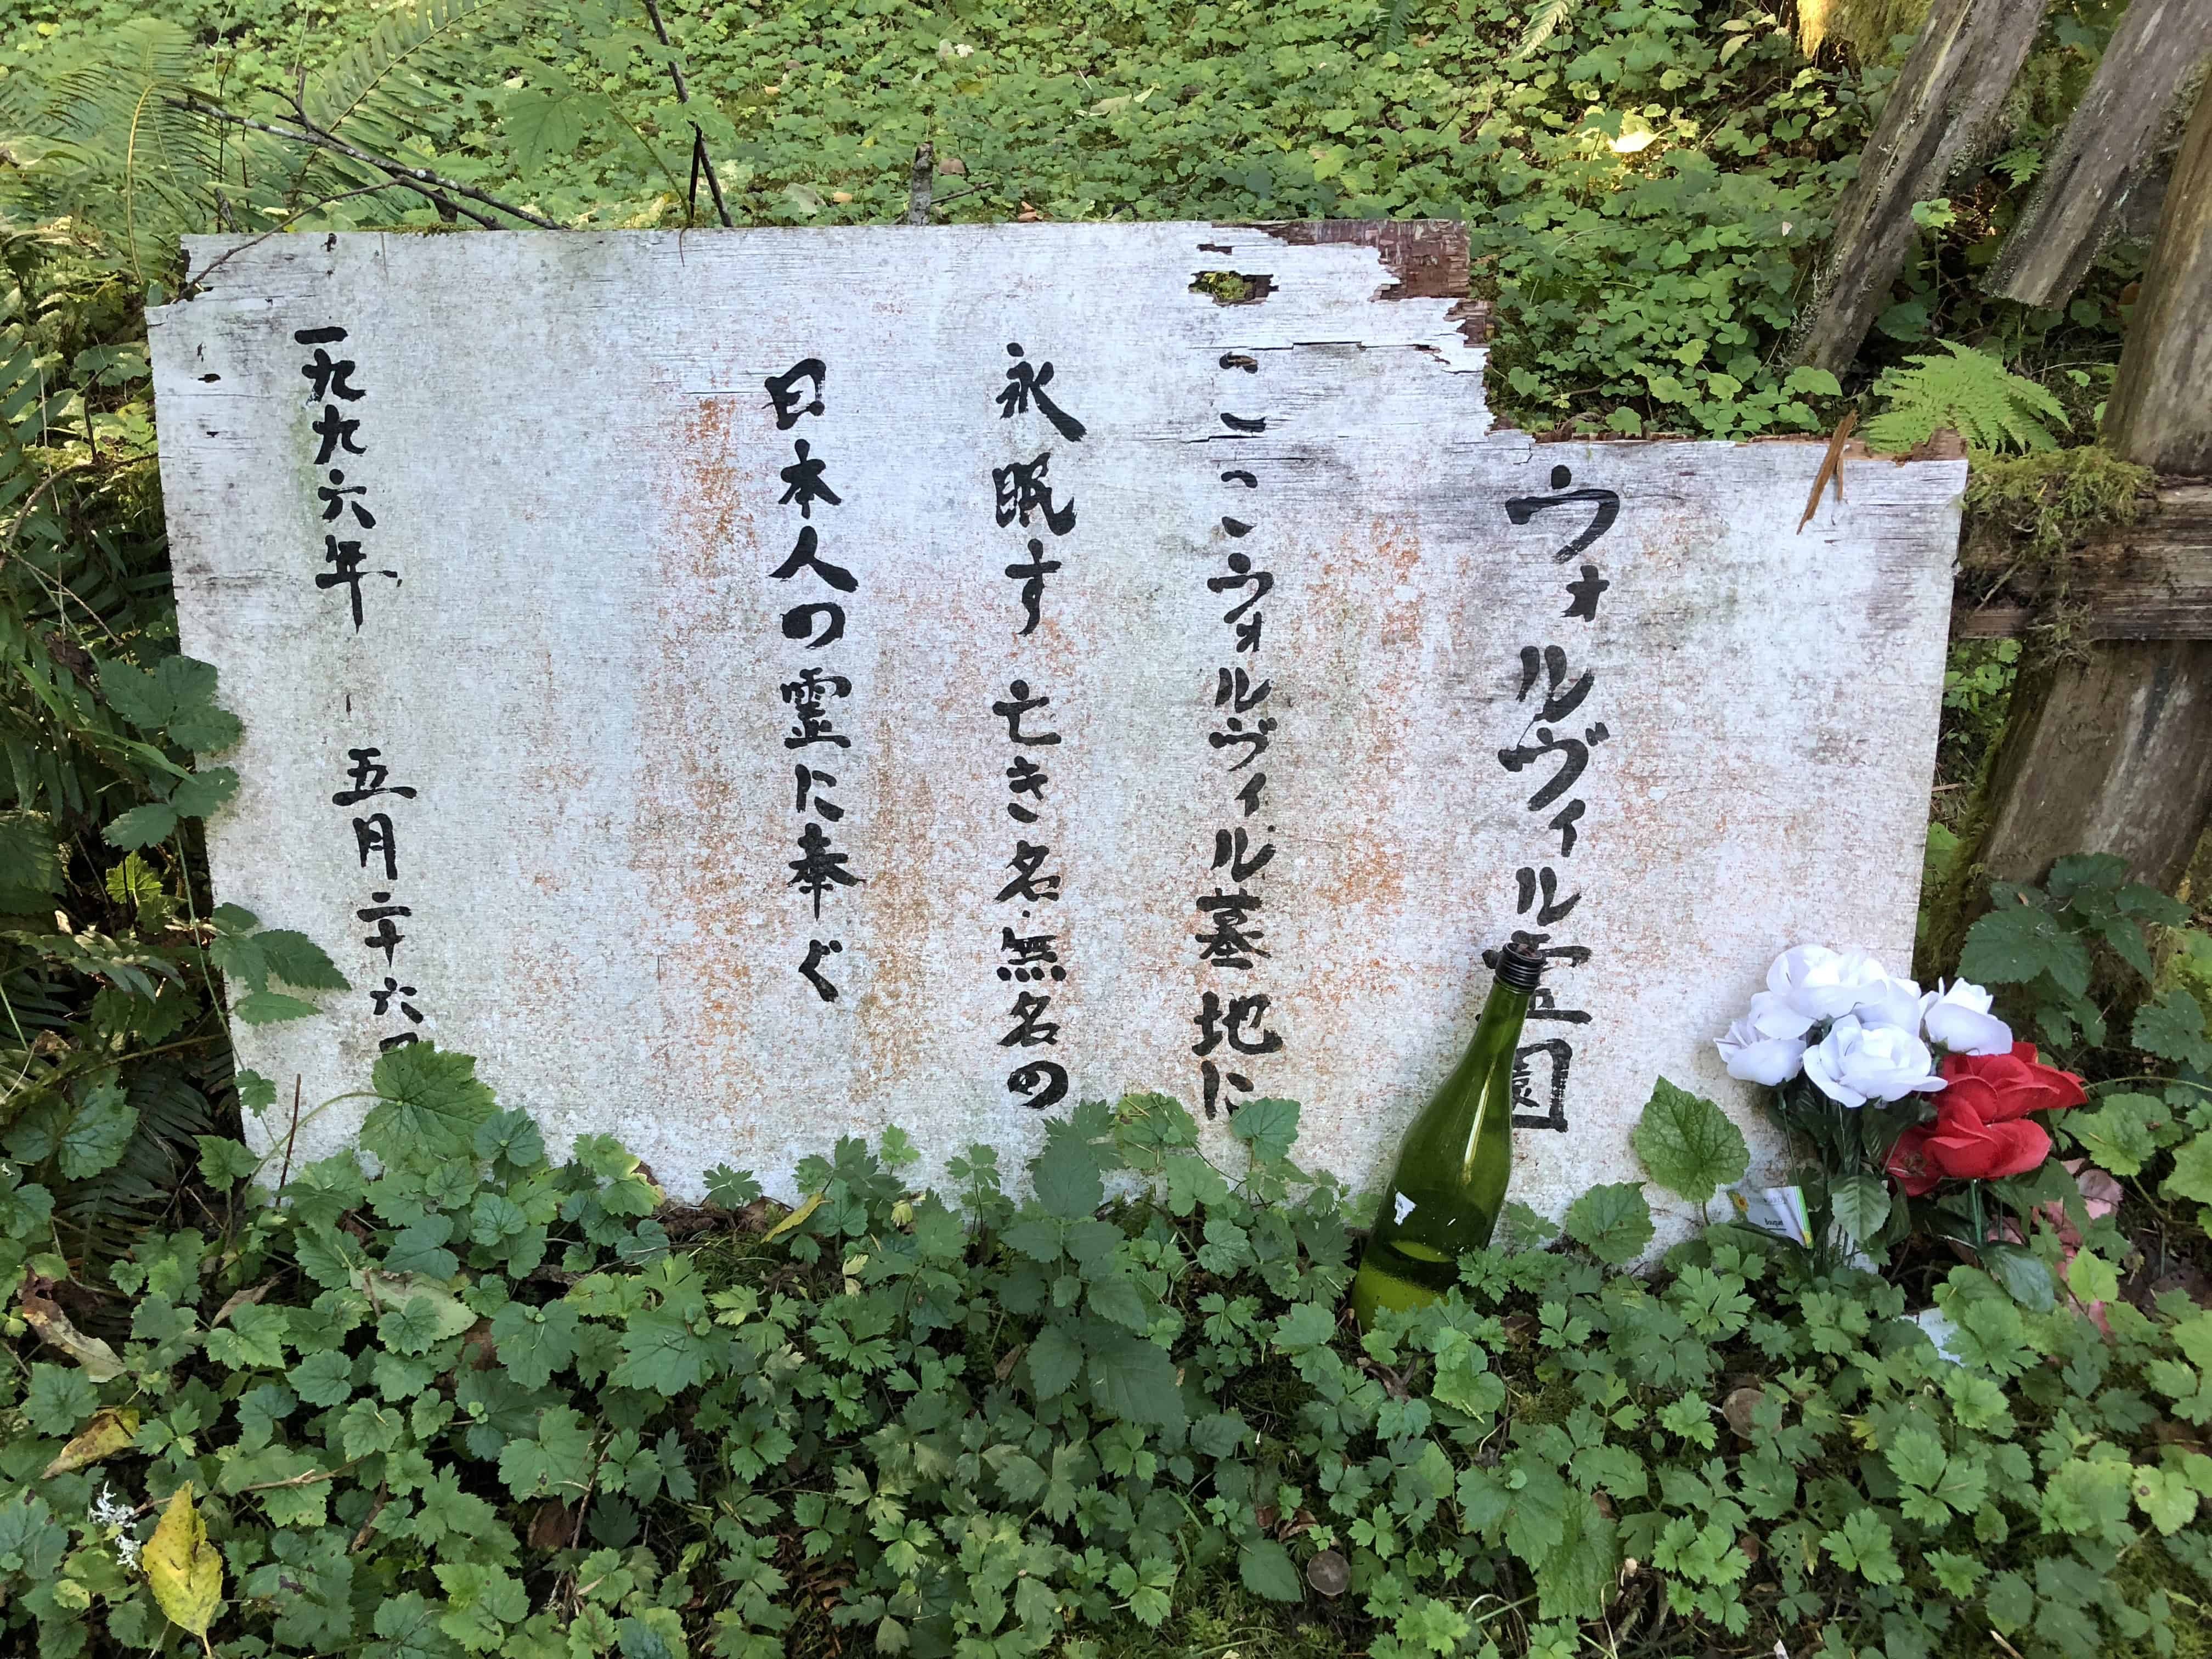 ウォルヴィル霊園
ここウォルヴィル墓地に
永眠す 亡き名・無名の
日本人の霊に奉ぐ
一九九六年 五月二十六日
bouquet